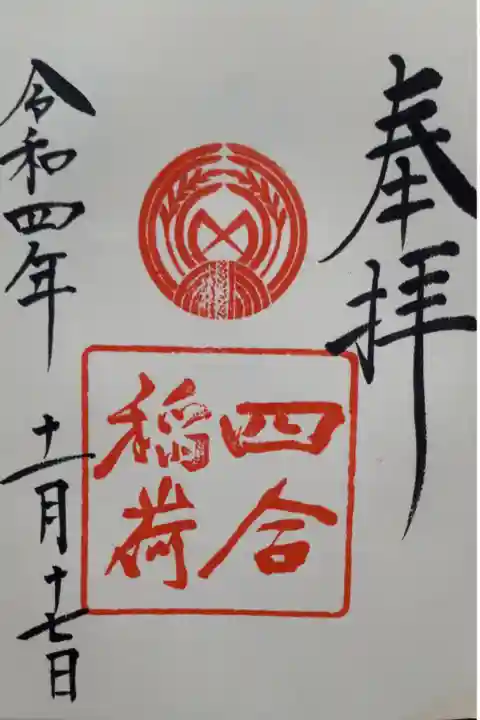 奉拝
四合
稲荷
令和四年
十一月十七日